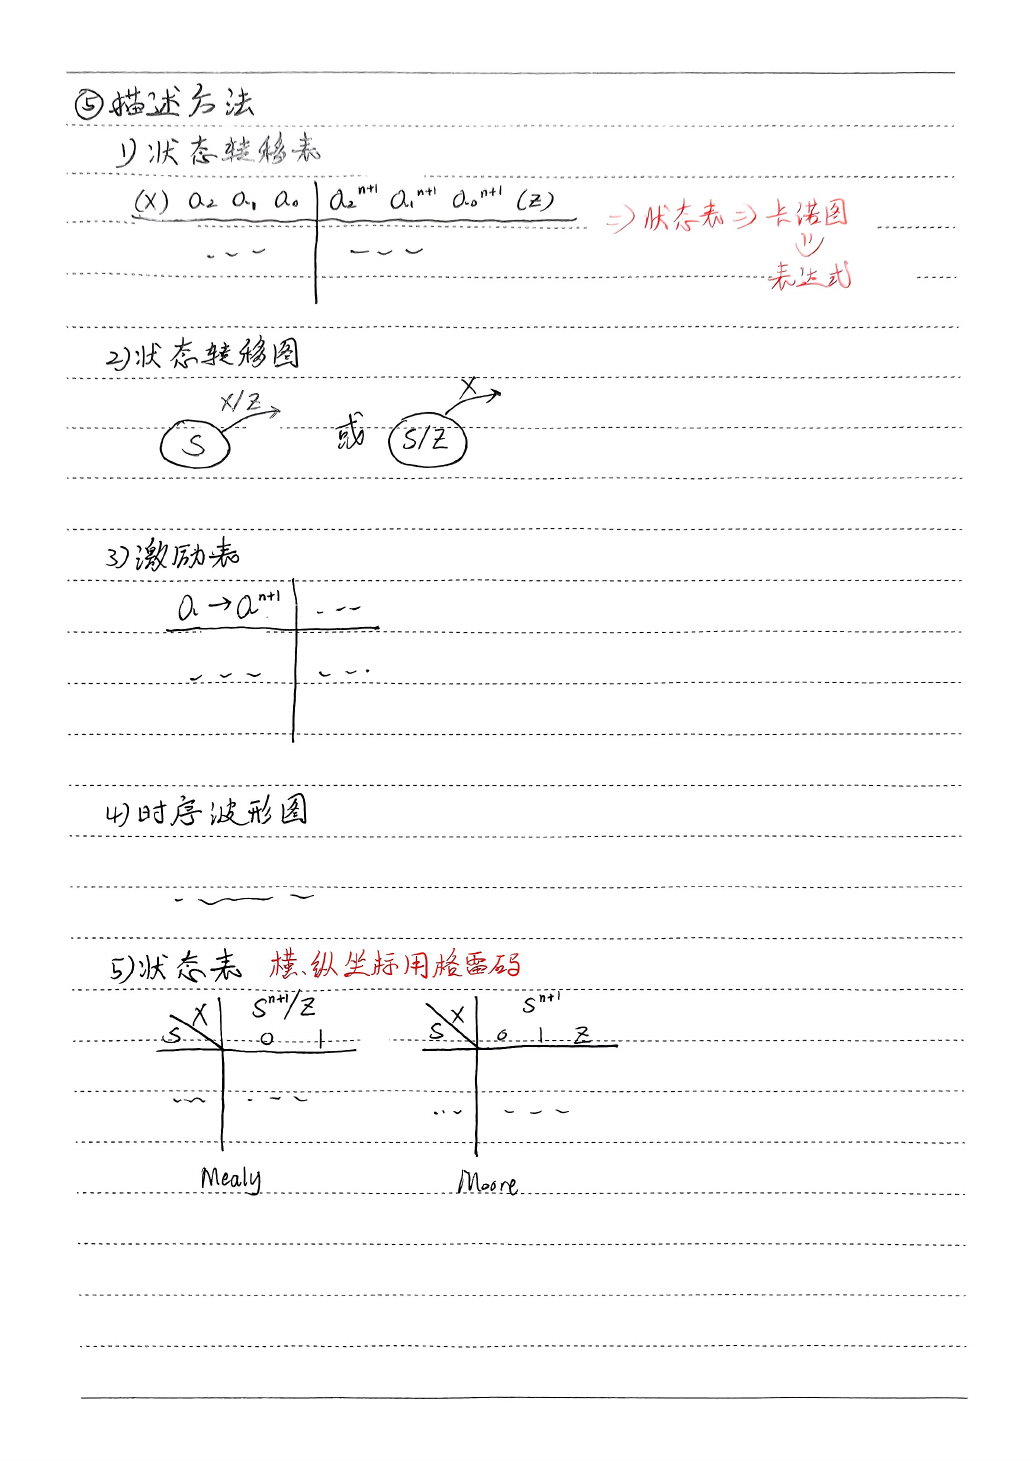 ⑤描述方法
1)状态转移表
(X) Q₂ Q₁ Q₀ | Q₂ⁿ⁺¹ Q₁ⁿ⁺¹ Q₀ⁿ⁺¹ (Z)
⇒状态表⇒卡诺图
⇓
表达式
2)状态转移图
S X/Z 或 S/Z X
3)激励表
Q→Qⁿ⁺¹
4)时序波形图
5)状态表 横、纵坐标用格雷码
S X Sⁿ⁺¹/Z 0 1
S X Sⁿ⁺¹ 0 1 Z
Mealy Moore